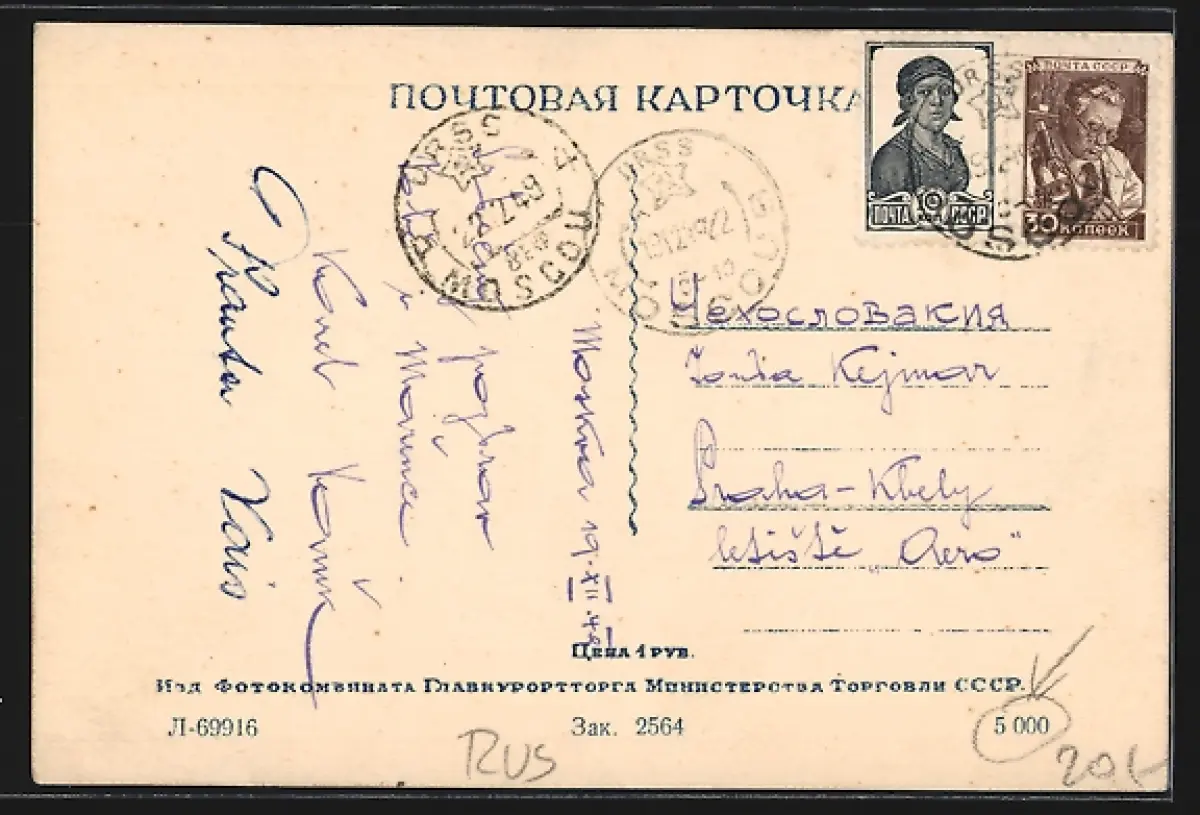 ПОЧТОВАЯ КАРТОЧКА
ПОЧТА СССР
10
ПОЧТА СССР
30 КОПЕЕК
URSS
MOSCOU
URSS
MOSCOU
Москва 19.XII.48
pozdrav
i Mařence
Karel
Чехословакия
Kejmar
Praha-Kbely
letiště „Aero"
Цена 1 руб.
Изд Фотокомбината Главкурортторга Министерства Торговли СССР.
Л-69916
Зак. 2564
5 000
RUS
20,-